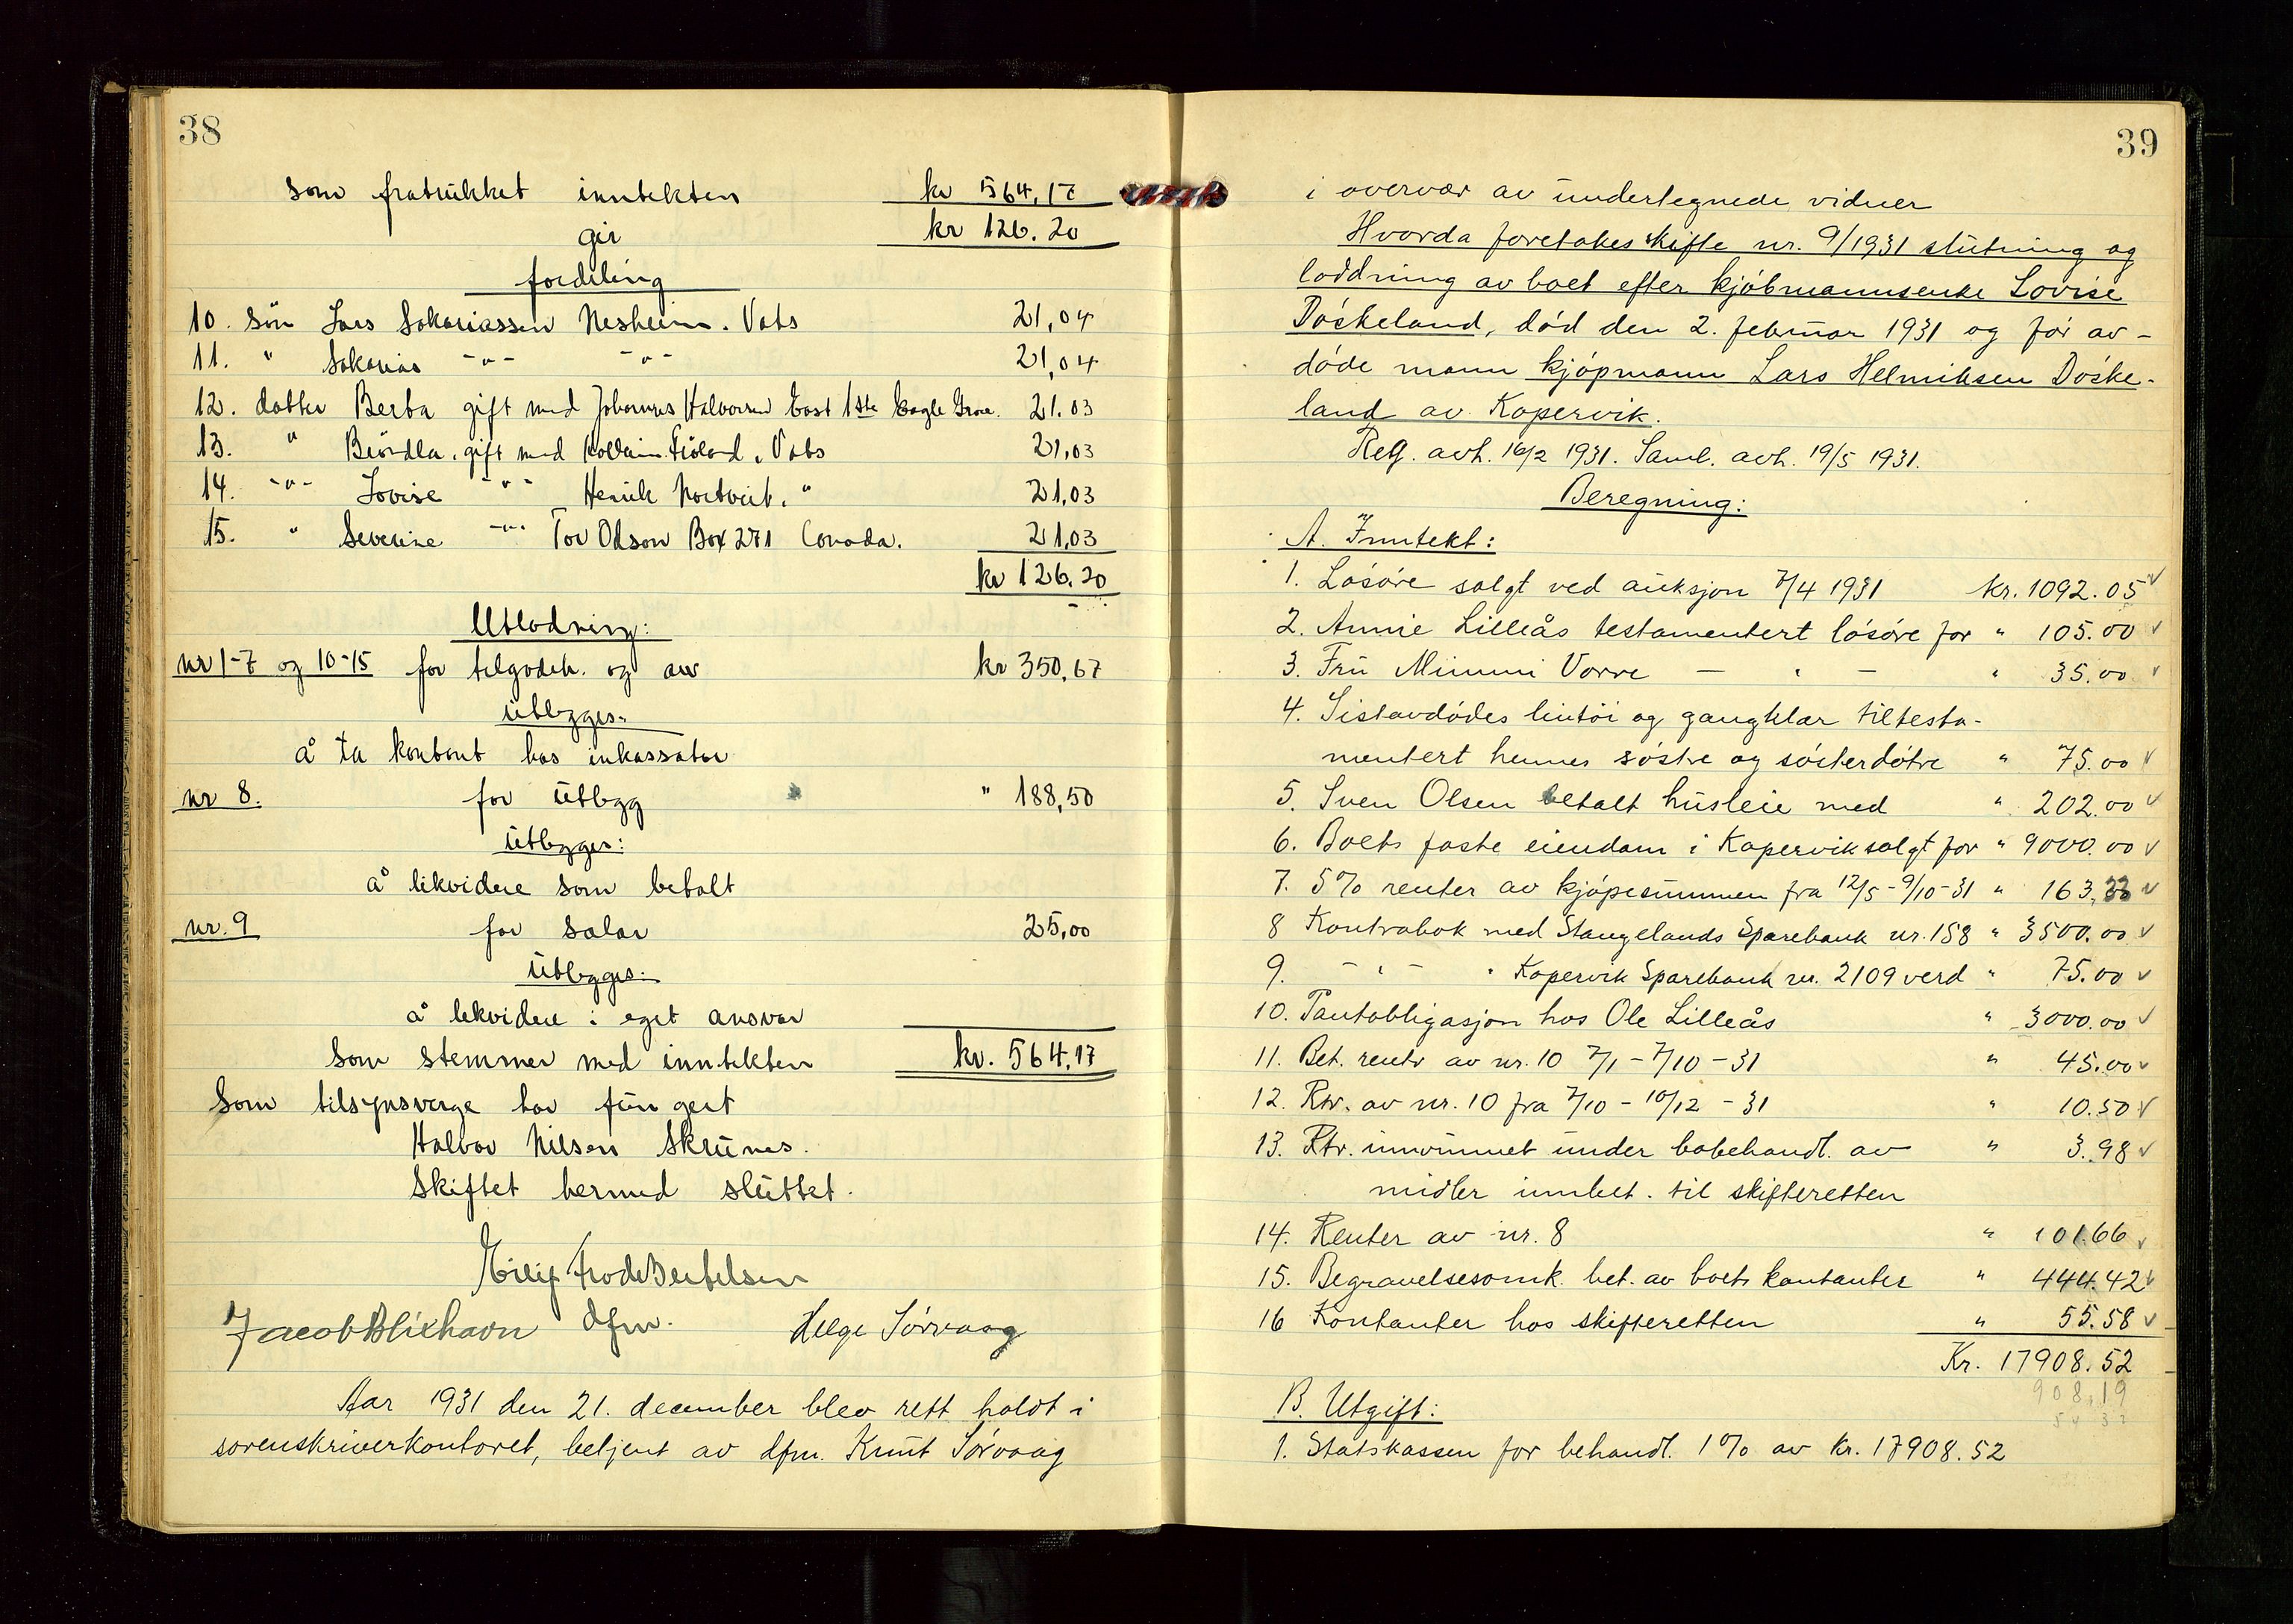 38
som fratrukket inntekten kr 564,17
gir kr 126.20
fordeling
10. sön Lars Sakariassen Nesheim. Vats 21,04
11. " Sakarias -"- -"- 21,04
12. datter Berta gift med Johannes Halvorsen East 1ste Eagle Grove. 21.03
13. " gift med Vats 21,03
14. -"- Lovise -"- Henrik " 21,03
15. " Severine -"- Tor Olson Box 271 Canada. 21,03
kr 126.20
Utlodning:
nr 1-7 og 10-15 for tilgodeh. og arv kr 350,67
utlegges:
å ta kontant hos inkassator
nr 8. for utlegg " 188,50
utlegges:
å likvidere som betalt
nr. 9 for salær 25,00
utlegges:
å likvidere i eget ansvar
som stemmer med inntekten kr. 564,17
Som tilsynsverge har fungert
Halvor Nilsen Skrunes.
Skiftet hermed sluttet.
Eilif Frode Bertelsen
Jacob Blixhavn dfm. Helge Sørvaag
Aar 1931 den 21. december blev rett holdt i
sorenskriverkontoret, betjent av dfm. Knut Sørvaag
39
i overvær av undertegnede vidner
Hvorda foretokes skifte nr. 9/1931 slutning og
loddning av boet efter kjöbmannsenke Lovise
Döskeland, död den 2. februar 1931 og för av-
döde mann kjöpmann Lars Helmiksen Döske-
land av Kopervik.
Reg. avh. 16/2 1931. Saml. avh. 19/5 1931.
Beregning:
A. Inntekt:
1. Lösöre solgt ved auksjon 7/4 1931 kr. 1092.05
2. Annie Lilleås testamentert lösöre for " 105.00
3. Fru Mimmi Vorre — " — " 35.00
4. Sistavdödes lintöi og gangklær tiltesta-
mentert hennes söstre og sösterdötre " 75.00
5. Sven Olsen betalt husleie med " 202.00
6. Boets faste eiendom i Kopervik solgt for " 9000.00
7. 5% renter av kjöpesummen fra 12/5-9/10-31 " 163.33
8 Kontrabok med Stangelands Sparebank nr. 158 " 3500.00
9. - " - " Kopervik Sparebank nr. 2109 verd " 75.00
10. Pantobligasjon hos Ole Lilleås " 3000.00
11. Bet. rentr av nr. 10 7/1 - 7/10 - 31 " 45.00
12. Rtr. av nr. 10 fra 7/10 - 10/12 - 31 " 10.50
13. Rtr. innvunnet under bobehandl. av " 3.98
midler innbet. til skifteretten
14. Renter av nr. 8 " 101.66
15. Begravelsesomk. bet. av boets kontanter " 444.42
16 Kontanter hos skifteretten " 55.58
Kr. 17908.52
908,19
B. Utgift:
1. Statskassen for behandl. 1% av kr. 17908.52